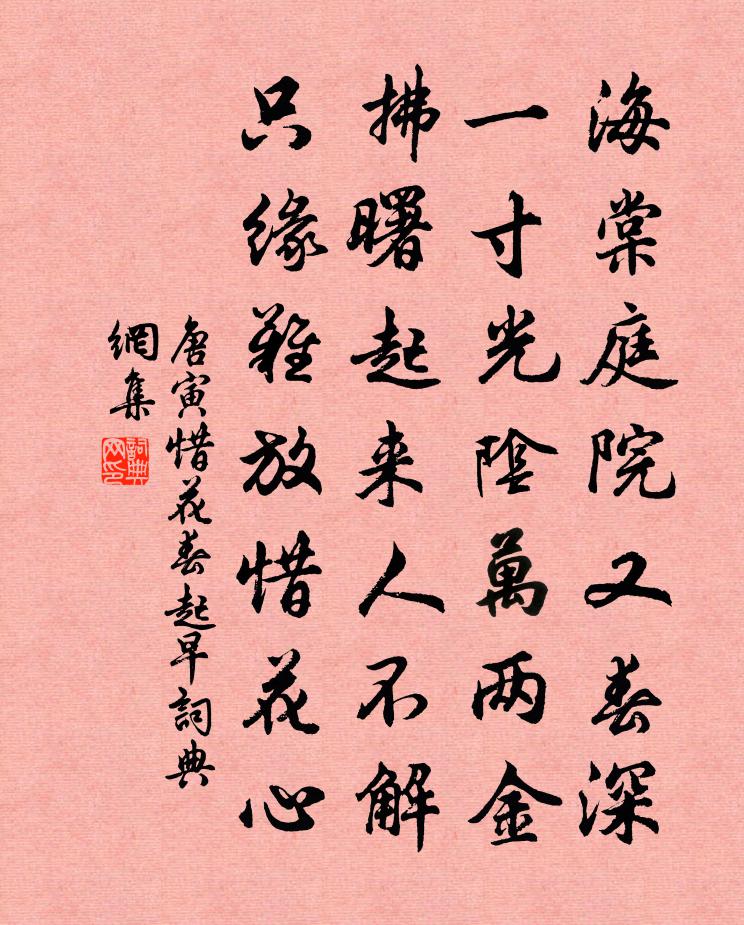 海棠庭院又春深
一寸光陰萬两金
拂曙起来人不解
只缘難放惜花心
唐寅惜花春起早詞典
網集
詞典
网印